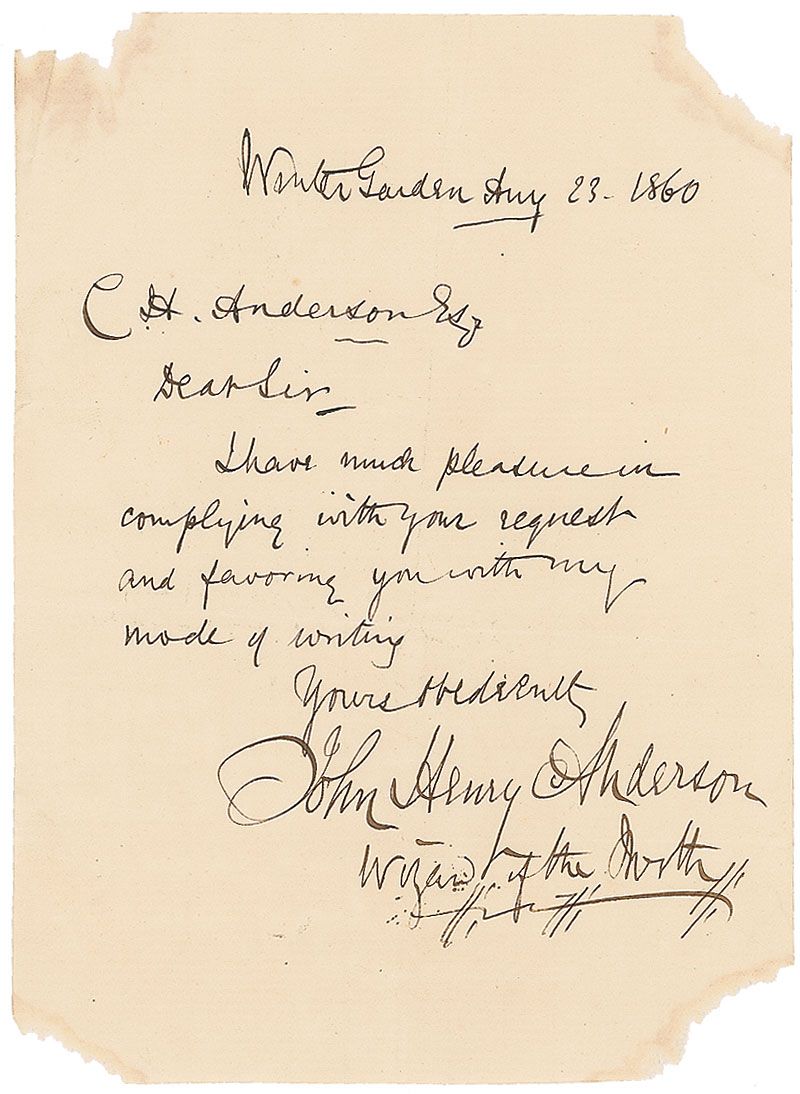 Winter Garden Aug 23 - 1860
C H. Anderson Esq
Dear Sir
I have much pleasure in
complying with your request
and favoring you with my
mode of writing
Yours obediently
John Henry Anderson
Wizard of the North